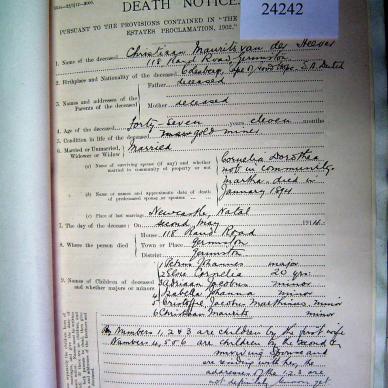 DEATH NOTICE
24242
PURSUANT TO THE PROVISIONS CONTAINED IN "THE
ESTATES PROCLAMATION, 1902."
1. Name of the deceased Christiaan Maurits van der Heever
118 Rand Road Germiston
2. Birthplace and Nationality of the deceased Edenburg, S.A. Dutch
3. Names and addresses of the Parents of the deceased
Father deceased
Mother deceased
4. Age of the deceased Forty-Seven years eleven months
5. Condition in life of the deceased gold mines
6. Married or Unmarried, Widower or Widow Married
(a) Name of surviving spouse (if any) and whether married in community of property or not
Cornelia Dorothea
not in community.
(b) Name or names and approximate date of death of predeceased spouse or spouses
Martha died in
January 1894
(c) Place of last marriage Newcastle, Natal
7. The day of the decease: On second May 191
8. Where the person died
House 118 Rand Road
Town or Place Germiston
District Germiston
9. Names of Children of deceased and whether majors or minors
1 Petrus Johannes major
2 Elsie Cornelia 20 yrs.
3 Adriaan Jacobus minor
4 Isabella Johanna minor
5 Christoffel Jacobus Marthinus minor
6 Christiaan Maurits minor
Numbers 1, 2 & 3 are children by the first wife
Numbers 4, 5 & 6 are children by the second
surviving spouse and
are residing with her, the
addresses of the 1.2.3 are
not definitely known yet